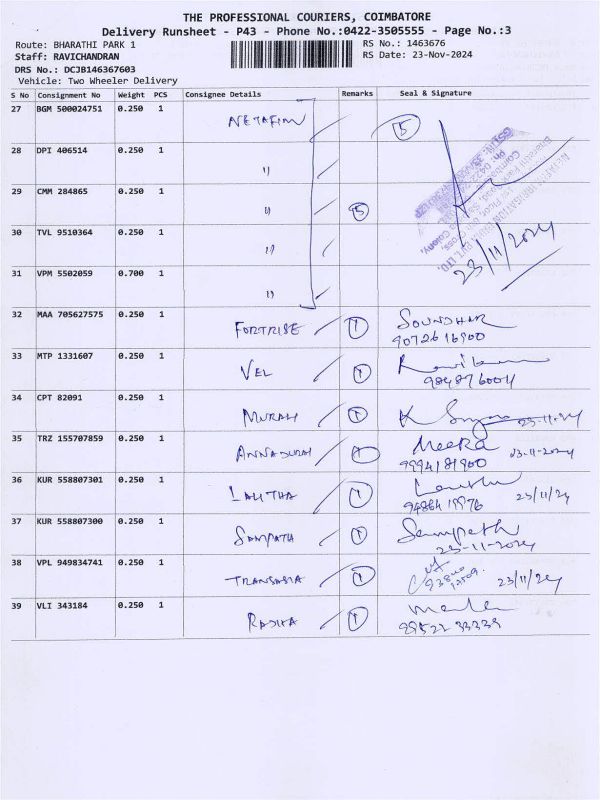 THE PROFESSIONAL COURIERS, COIMBATORE
Delivery Runsheet - P43 - Phone No.:0422-3505555 - Page No.:3
Route: BHARATHI PARK 1 RS No.: 1463676
Staff: RAVICHANDRAN RS Date: 23-Nov-2024
DRS No.: DCJB146367603
Vehicle: Two Wheeler Delivery
S No Consignment No Weight PCS Consignee Details Remarks Seal & Signature
27 BGM 500024751 0.250 1 NETAFIM 5
28 DPI 406514 0.250 1 "
29 CMM 284865 0.250 1 " 5
30 TVL 9510364 0.250 1 "
31 VPM 5502059 0.700 1 "
23/11/2024
32 MAA 705627575 0.250 1 FORTRISE 1 SOUNDHAR
9072616900
33 MTP 1331607 0.250 1 VEL 1
34 CPT 82091 0.250 1 MURALI 1 23-11-24
35 TRZ 155707859 0.250 1 ANNADURAI 1 Meera
9994181900 23-11-2024
36 KUR 558807301 0.250 1 LALITHA 1
23/11/24
37 KUR 558807300 0.250 1 SAMPATH 1 Sampath
23-11-2024
38 VPL 949834741 0.250 1 TRANSASIA 1
23/11/24
39 VLI 343184 0.250 1 RADHA 1